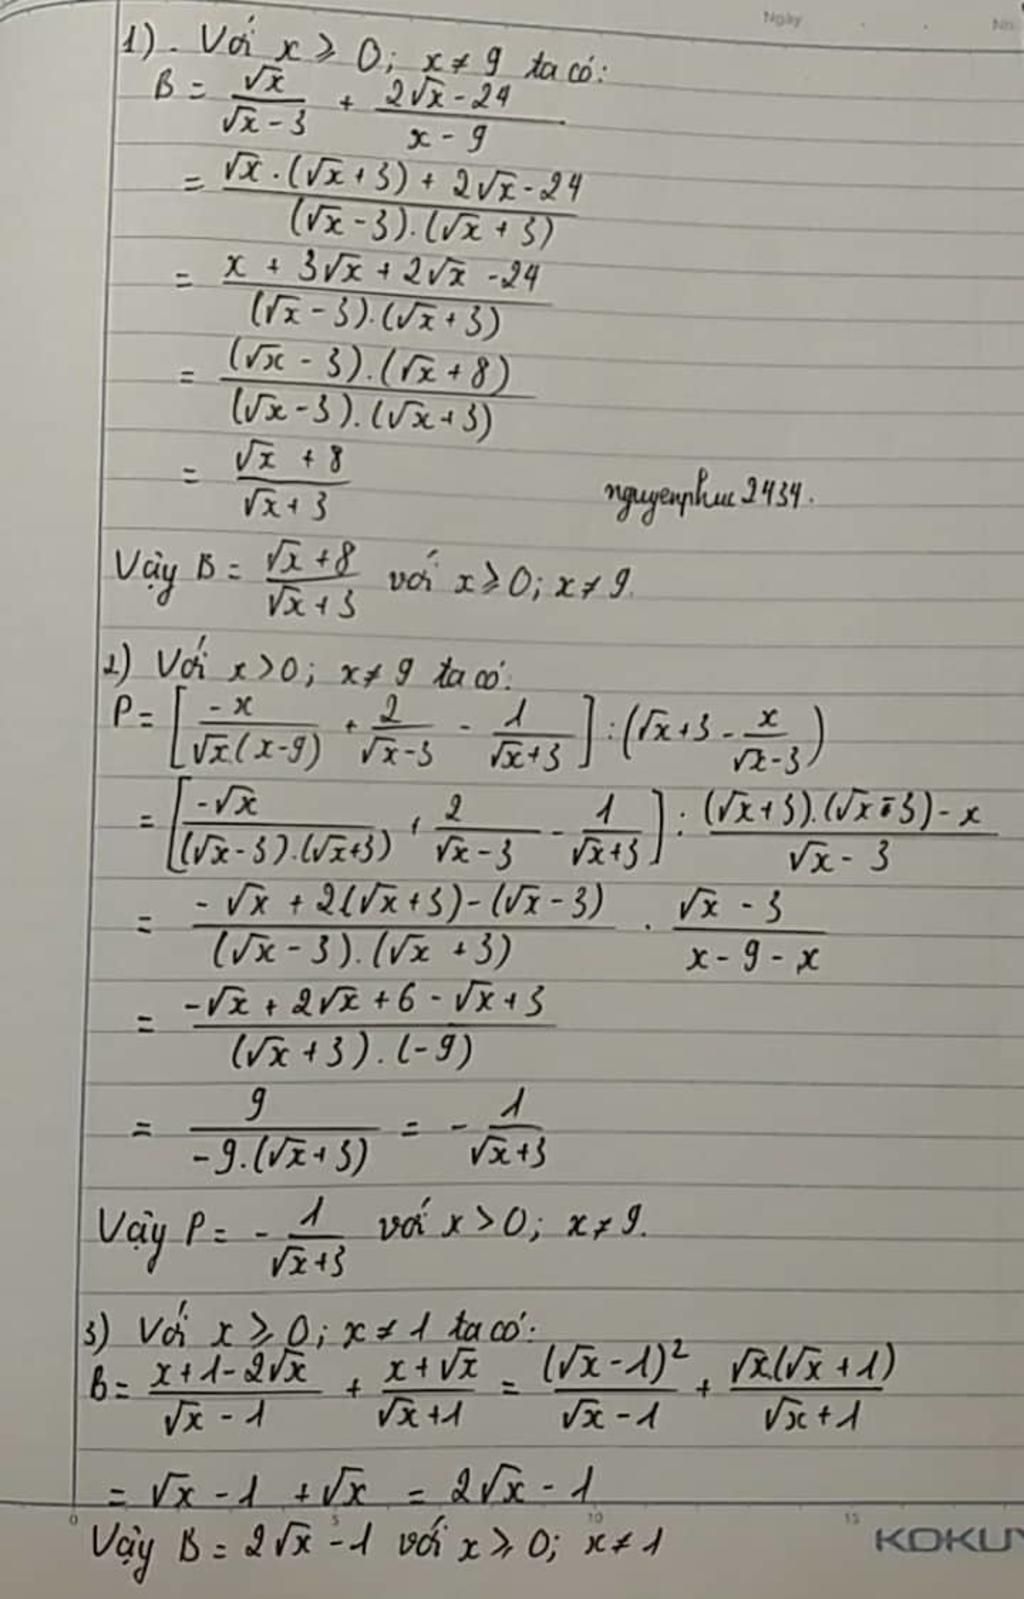 Ngày
No.
1). Với x ≥ 0; x ≠ 9 ta có:
B = √x/(√x - 3) + (2√x - 24)/(x - 9)
= (√x . (√x + 3) + 2√x - 24)/((√x - 3).(√x + 3))
= (x + 3√x + 2√x - 24)/((√x - 3).(√x + 3))
= ((√x - 3).(√x + 8))/((√x - 3).(√x + 3))
= (√x + 8)/(√x + 3)
nguyenphuc2434.
Vậy B = (√x + 8)/(√x + 3) với x ≥ 0; x ≠ 9.
2) Với x > 0; x ≠ 9 ta có:
P = [-x/(√x(x-9)) + 2/(√x-3) - 1/(√x+3)] : (√x+3 - x/(√x-3))
= [-√x/((√x-3).(√x+3)) + 2/(√x-3) - 1/(√x+3)] : ((√x+3).(√x-3) - x)/(√x - 3)
= (-√x + 2(√x+3) - (√x - 3))/((√x - 3).(√x + 3)) . (√x - 3)/(x - 9 - x)
= (-√x + 2√x + 6 - √x + 3)/((√x + 3).(-9))
= 9/(-9.(√x+3)) = - 1/(√x+3)
Vậy P = - 1/(√x+3) với x > 0; x ≠ 9.
3) Với x ≥ 0; x ≠ 1 ta có:
B = (x + 1 - 2√x)/(√x - 1) + (x + √x)/(√x + 1) = (√x - 1)²/(√x - 1) + √x(√x + 1)/(√x + 1)
= √x - 1 + √x = 2√x - 1
0 5 10 15
Vậy B = 2√x - 1 với x ≥ 0; x ≠ 1